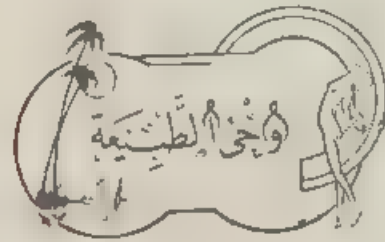 وحي الطبيعة